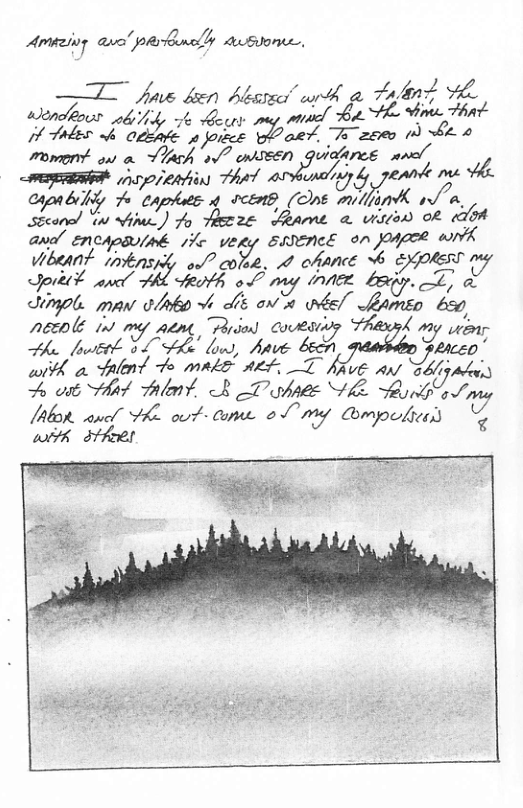 Amazing and profoundly awesome.
I have been blessed with a talent, the
wondrous ability to focus my mind for the time that
it takes to create a piece of art. To zero in for a
moment on a flash of unseen guidance and
inspiration that astoundingly grants me the
capability to capture a scene (one millionth of a
second in time) to freeze frame a vision or idea
and encapsulate its very essence on paper with
vibrant intensity of color. A chance to express my
spirit and the truth of my inner being. I, a
simple man slated to die on a steel framed bed,
needle in my arm, poison coursing through my viens,
the lowest of the low, have been graced
with a talent to make art. I have an obligation
to use that talent. So I share the fruits of my
labor and the out-come of my compulsion
with others.
8